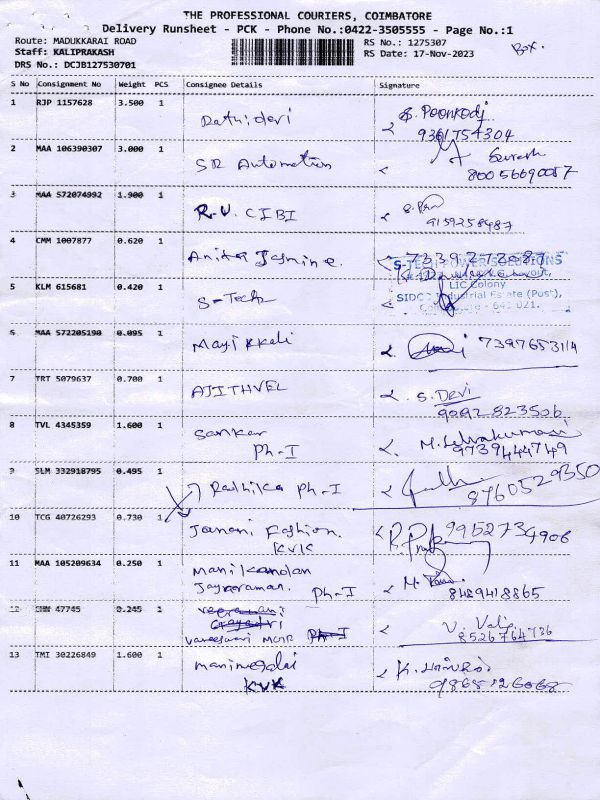 THE PROFESSIONAL COURIERS, COIMBATORE
Delivery Runsheet - PCK - Phone No.:0422-3505555 - Page No.:1
Route: MADUKKARAI ROAD
Staff: KALIPRAKASH
DRS No.: DCJB127530701
RS No.: 1275307
RS Date: 17-Nov-2023
Box.
S No Consignment No Weight PCS Consignee Details Signature
1 RJP 1157628 3.500 1 Rathidevi S. Poonkodi
9361754304
2 MAA 106390307 3.000 1 SR Automation Suresh
80056690057
3 MAA 572074992 1.900 1 R.V. CIBI
9159258487
4 CMM 1007877 0.620 1 Anita Jasmine.
5 KLM 615681 0.420 1 S-Tech
LIC Colony
6 MAA 572205190 0.095 1 Mayikkali 7397653114
7 TRT 5079637 0.700 1 AJITHVEL S. Devi
9092823506
8 TVL 4345359 1.600 1 Sankar
Ph-I 9739444749
9 SLM 332918795 0.495 1 Rathika Ph-I 8760529350
10 TCG 40726293 0.730 1 Janani Fashion.
KVK 9952734906
11 MAA 105209634 0.250 1 Manikandan
Jayaraman. Ph-I 8489418865
12 CHN 47745 0.245 1
V. Valli
8526764736
13 TMI 30226849 1.600 1 Manimegalai
KVK